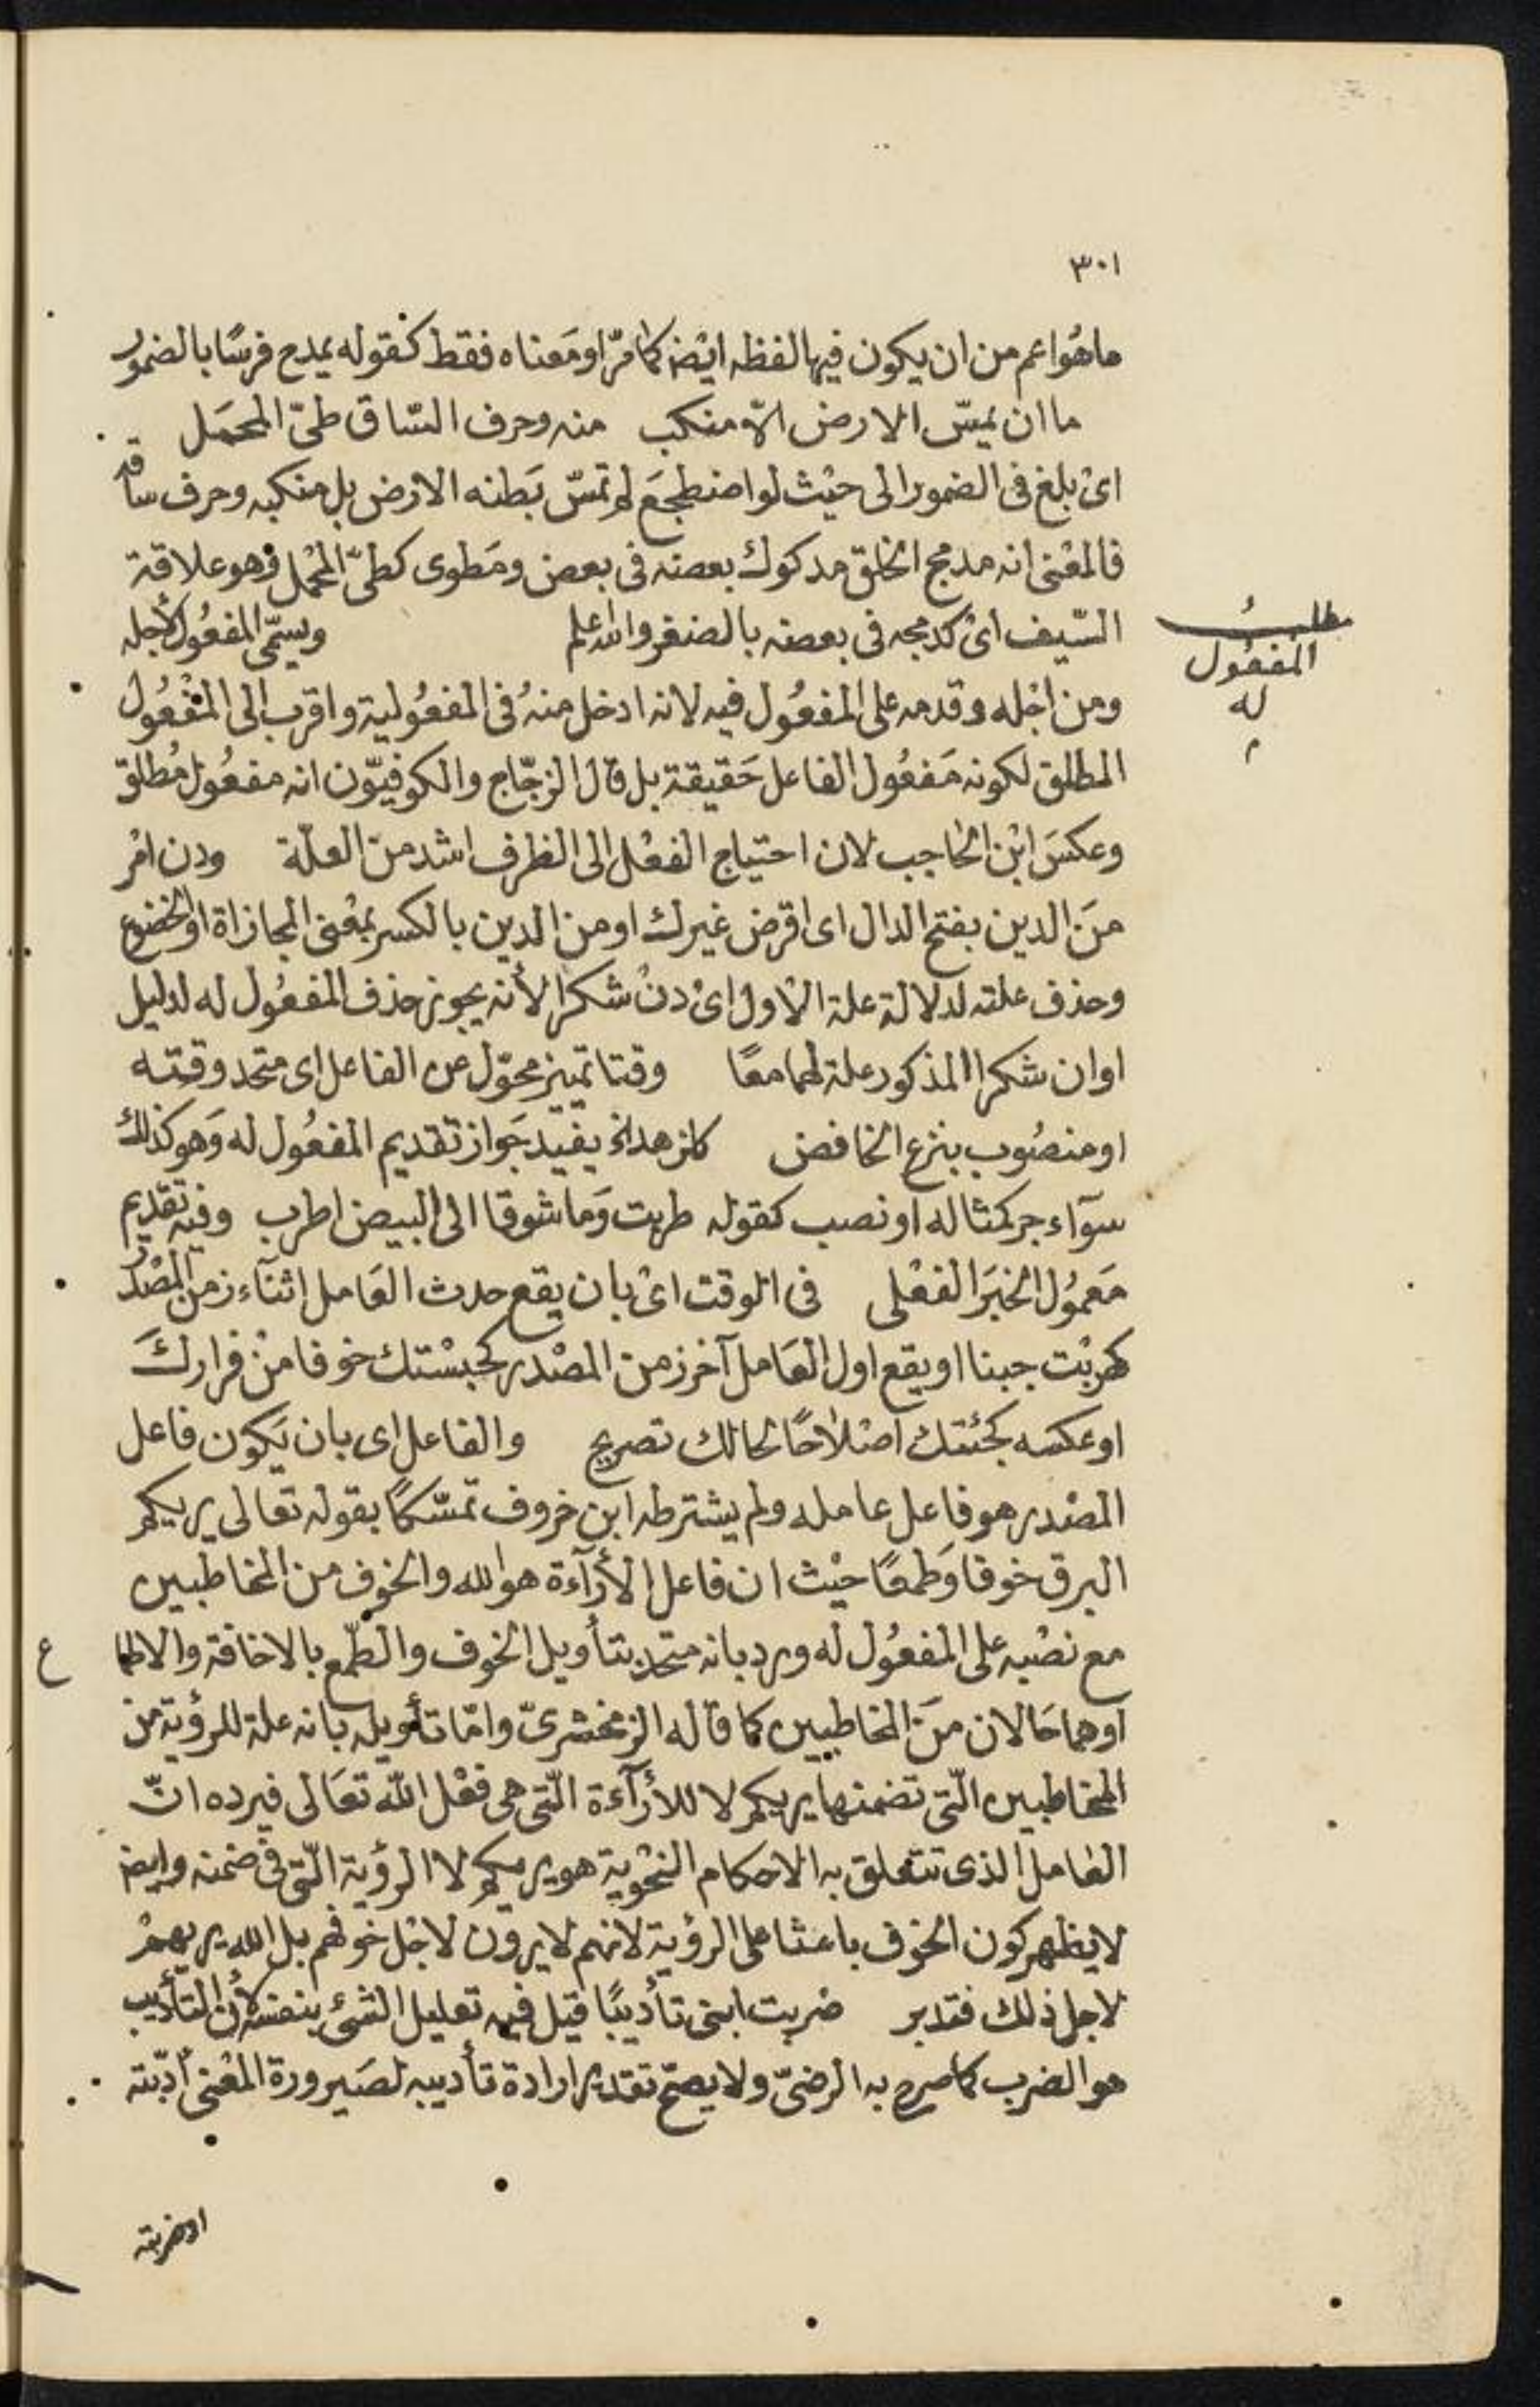 ٣٠١
ما هُو اعم من ان يكون فيها لفظه ايضا كما مرّ او مَعناه فقط كقوله يمدح فرسًا بالضمور
ما ان يمسّ الارض الاّ منكب منه وحرف السّاق طىّ المحمَل
اىْ بلغ فى الضمور الى حيْث لو اضطجعَ لم تمسّ بَطنه الارض بل منكبه وحرف ساقه
فالمعْنى انه مدمج الخلق مدكوك بعضه فى بعض ومَطوى كطىّ المحْمل وهو علاقة
السّيف اىْ كدمجه فى بعضه بالضفر والله اعلم ويسمّى المفعُول لأجله
مطلبُ
المفعُول
له
م
ومن اجْله وقدمه على المفعُول فيه لانه ادخل منهُ فى المفعُولية واقرب الى المفْعُول
المطلق لكونه مَفعُول الفاعل حَقيقة بل قال الزجّاج والكوفيّون انه مفعُول مُطلق
وعكسَ ابْن الحاجب لان احتياج الفعْل الى الظرف اشد من العلّة ودن امْر
منَ الدين بفتح الدال اى اقرض غيرك او من الدين بالكسر بمعْنى المجازاة او الخضوع
وحذف علته لدلالة علة الاول اىْ دنْ شكرا لأنه يجوز حذف المفعُول له لدليل
او ان شكرا المذكور علة لهما معًا وقتا تمييز محوّل عن الفاعل اى متحد وقته
او منصُوب بنزع الخافض كلزهد اذ يفيْد جَواز تقديم المفعُول له وَهو كذلك
سوآء جر كمثاله او نصب كقوله طربت وَما شوقا الى البيض اطرب وفيه تقديم
مَعمُول الخبَر الفعْلى فى الوقت اىْ بان يقع حدث العَامل اثنآء زمن المصْدر
كهربْت جبنا او يقع اول العَامل آخر زمن المصْدر كحبسْتك خوفا منْ فراركَ
او عكسه كجئتك اصْلاحًا لحالك تصريح والفاعل اى بان يَكون فاعل
المصْدر هو فاعل عامله ولم يشترطه ابن خروف تمسّكًا بقوله تعالى يريكم
البرق خوفا وَطمعًا حيْث ان فاعل الأرآءة هو الله والخوف من المخاطبين
مع نصْبه على المفعُول له ورد بانه متحد بتأويل الخوف والطّمع بالاخافة والاطماع
او هما حَالان منَ المخاطبين كما قاله الزمخشرىّ وامّا تأويله بانه علة للرؤية من
المخاطبين الّتى تضمنها يريكم لا للأرآءة الّتى هى فعْل الله تعَالى فيرده انّ
العَامل الذى تتعلق به الاحكام النحْوية هو يريكم لا الرؤية الّتى فى ضمنه وايضا
لا يظهر كون الخوف باعثا على الرؤية لانهم لا يرون لاجْل خوفهم بل الله يريهمْ
لاجل ذلك فتدبر ضربت ابنى تأديبًا قيْل فيه تعليل الشىء بنفسه لأن التأديب
هو الضرب كما صرح به الرضىّ ولا يصحّ تقدير ارادة تأديبه لصَيرورة المعْنى أدّبته
او ضربته